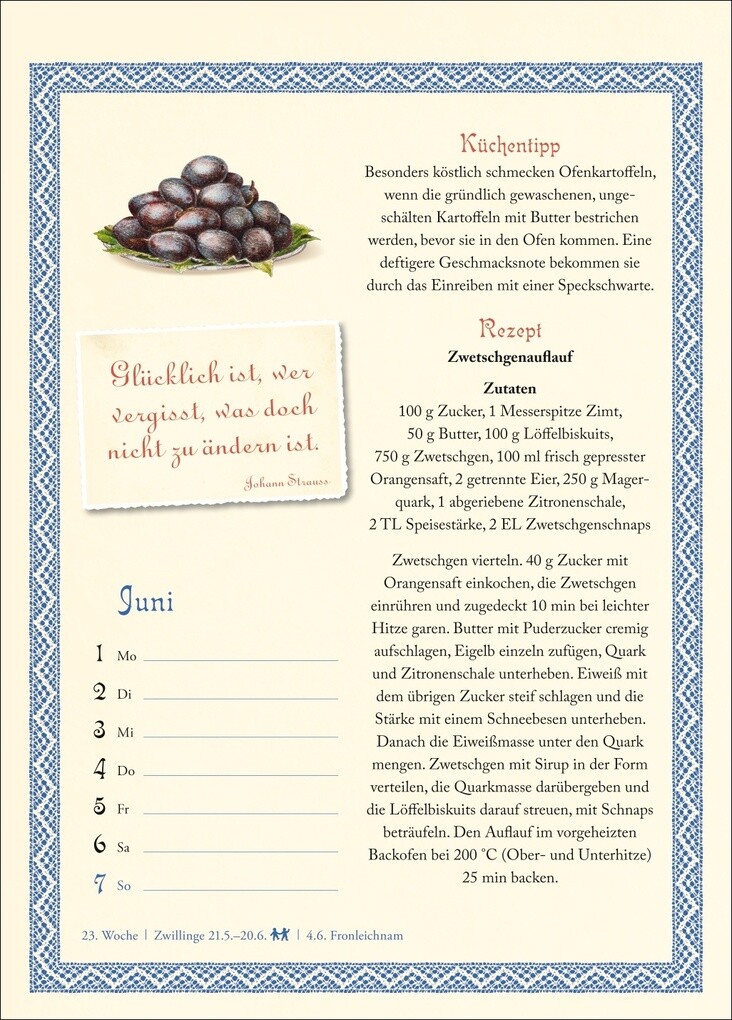 Küchentipp
Besonders köstlich schmecken Ofenkartoffeln,
wenn die gründlich gewaschenen, unge-
schälten Kartoffeln mit Butter bestrichen
werden, bevor sie in den Ofen kommen. Eine
deftigere Geschmacksnote bekommen sie
durch das Einreiben mit einer Speckschwarte.
Rezept
Zwetschgenauflauf
Zutaten
100 g Zucker, 1 Messerspitze Zimt,
50 g Butter, 100 g Löffelbiskuits,
750 g Zwetschgen, 100 ml frisch gepresster
Orangensaft, 2 getrennte Eier, 250 g Mager-
quark, 1 abgeriebene Zitronenschale,
2 TL Speisestärke, 2 EL Zwetschgenschnaps
Zwetschgen vierteln. 40 g Zucker mit
Orangensaft einkochen, die Zwetschgen
einrühren und zugedeckt 10 min bei leichter
Hitze garen. Butter mit Puderzucker cremig
aufschlagen, Eigelb einzeln zufügen, Quark
und Zitronenschale unterheben. Eiweiß mit
dem übrigen Zucker steif schlagen und die
Stärke mit einem Schneebesen unterheben.
Danach die Eiweißmasse unter den Quark
mengen. Zwetschgen mit Sirup in der Form
verteilen, die Quarkmasse darübergeben und
die Löffelbiskuits darauf streuen, mit Schnaps
beträufeln. Den Auflauf im vorgeheizten
Backofen bei 200 °C (Ober- und Unterhitze)
25 min backen.
Glücklich ist, wer
vergisst, was doch
nicht zu ändern ist.
Johann Strauss
Juni
1 Mo
2 Di
3 Mi
4 Do
5 Fr
6 Sa
7 So
23. Woche | Zwillinge 21.5.–20.6. | 4.6. Fronleichnam